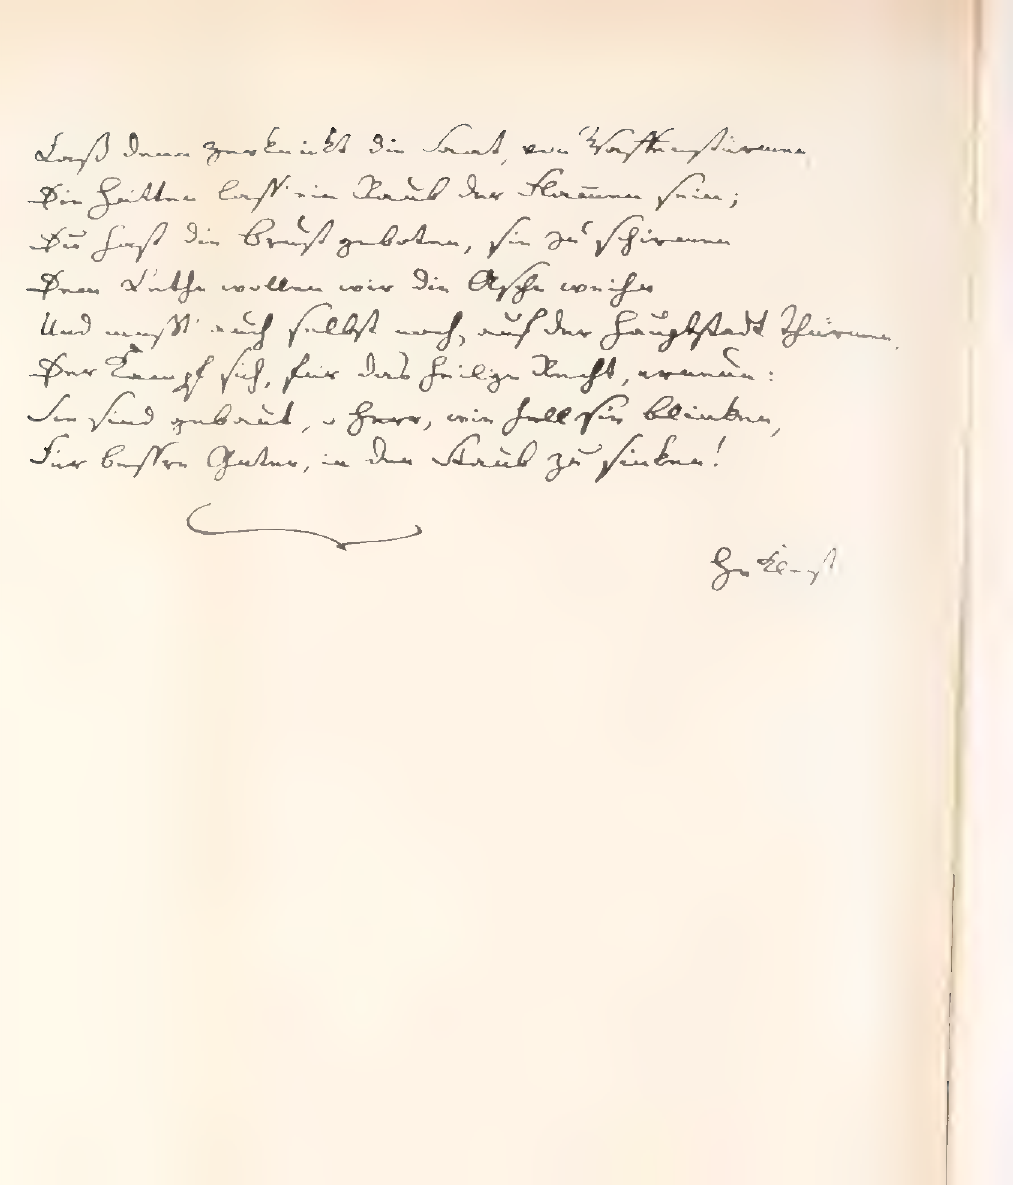 Laß denn zerknickt die Saat, von Waffenstürmen,
Die Hütten lass' ein Raub der Flammen sein;
Du hast die Brust geboten, sie zu schirmen
Dem Lethe wollen wir die Asche weihn
Und müßt' auch selbst noch, auf der Hauptstadt Thürmen,
Der Kampf sich, für das heilge Recht, erneun:
Sie sind gebaut, o Herr, wie hell sie blinken,
Für bessre Güter, in den Staub zu sinken!
Hv Kleist